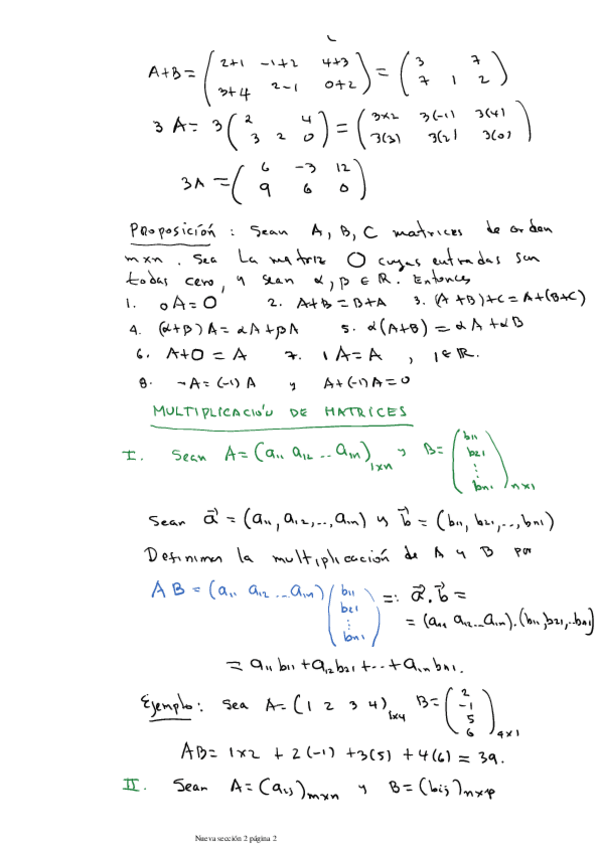 A+B = ( 2+1 -1+2 4+3 ) = ( 3 7 )
3+4 2-1 0+2 7 1 2
3 A = 3 ( 2 4 ) = ( 3x2 3(-1) 3(4) )
3 2 0 3(3) 3(2) 3(0)
3A = ( 6 -3 12 )
9 6 0
Proposición : Sean A, B, C matrices de orden
mxn. Sea la matriz O cuyas entradas son
todas cero, y sean α, β ∈ R. Entonces
1. 0A = O 2. A+B = B+A 3. (A+B)+C = A+(B+C)
4. (α+β)A = αA+βA 5. α(A+B) = αA+αB
6. A+O = A 7. 1A = A , 1∈R.
8. -A = (-1)A y A+(-1)A = O
MULTIPLICACIÓN DE MATRICES
I. Sean A = (a11 a12 ... a1n)1xn y B = ( b11 b21 ⋮ bn1 )nx1
Sean a⃗ = (a11, a12, ..., a1n) y b⃗ = (b11, b21, ..., bn1)
Definimos la multiplicación de A y B por
AB = (a11 a12 ... a1n) ( b11 b21 ⋮ bn1 ) =: a⃗ . b⃗ =
= (a11 a12 ... a1n).(b11, b21, ..bn1)
= a11 b11 + a12 b21 + ... + a1n bn1.
Ejemplo: Sea A = (1 2 3 4)1x4 B = ( 2 -1 5 6 )4x1
AB = 1x2 + 2(-1) + 3(5) + 4(6) = 39.
II. Sean A = (aij)mxn y B = (bij)nxp
Nueva sección 2 página 2